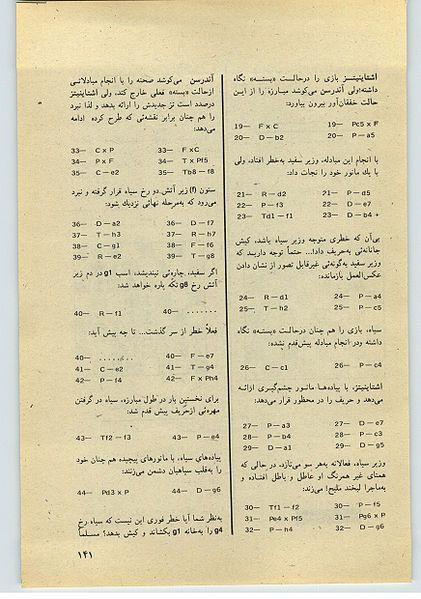 اشتاینیتز بازی را درحالت «بسته» نگاه
داشته؛ ولی آندرسن می‌کوشد مبارزه را از این
حالت خفقان‌آور بیرون بیاورد:
19— F x C 19— Pc5 x F
20— D — b2 20— P — a5
با انجام این مبادله، وزیر سفید به‌خطر افتاد، ولی
با یك مانور خود را نجات داد:
21— R — d2 21— P — d5
22— P — f3 22— D — e7
23— Td1 — f1 23— D — b4 +
بی‌آن که خطری متوجه وزیر سیاه باشد، کیش
جانانه‌ئی به‌حریف داد!... حتماً توجه دارید که
وزیر سفید به‌گونه‌ئی غیرقابل تصور از نشان دادن
عکس‌العمل بازمانده:
24— R — d1 24— P — a4
25— T — h2 25— P — c5
سیاه، بازی را هم چنان درحالت «بسته» نگاه
داشته ودر انجام مبادله پیش‌قدم نشده:
26— C — c1 26— P — c4
اشتاینیتز، با پیاده‌ها مانور چشم‌گیری ارائه
می‌دهد و حریف را در محظور قرار می‌دهد:
27— P — a3 27— D — e7
28— P — b4 28— P — c3
29— D — a1 29— D — g5
وزیر سیاه، فعالانه به‌هر سو می‌تازد، در حالی که
همتای غیر همرنگ او عاطل و باطل افتاده و
به‌ماجرا لبخند ملیح! می‌زند:
30— Tf1 — f2 30— P — f5
31— Pe4 x Pf5 31— Pg6 x P
32— P — h4 32— D — g6
آندرسن می‌کوشد صحنه را با انجام مبادلاتی
ازحالت «بسته» فعلی خارج کند، ولی اشتاینیتز
درصدد است تز جدیدش را ارائه بدهد و لذا نبرد
را هم چنان برابر نقشه‌ئی که طرح کرده ادامه
می‌دهد:
33— C x P 33— F x C
34— P x F 34— T x Pf5
35— C — e2 35— Tb8 — f8
ستون (f) زیر آتش دو رخ سیاه قرار گرفته و نبرد
می‌رود که به‌مرحله نهائی نزدیك شود:
36— D — a2 36— D — f7
37— T — h3 37— R — h7
38— C — g1 38— F — f6
39— R — e2 39— T — g8
اگر سفید، چاره‌ئی نیندیشد، اسب g1 در دم زیر
آتش رخ g8 تکه پاره خواهد شد:
40— R — f1 40— .......
فعلاً خطر از سر گذشت... تا چه پیش آید:
40— ....... 40— F — e7
41— C — e2 41— T — g4
42— P — f4 42— F x Ph4
برای نخستین بار در طول مبارزه، سیاه در گرفتن
مهره‌ئی ازحریف پیش قدم شد:
43— Tf2 — f3 43— P — e4
پیاده‌های سیاه، با مانورهای پیچیده هم چنان خود
را به‌قلب سپاهیان دشمن می‌زنند:
44— Pd3 x P 44— D — g6
به‌نظر شما آیا خطر فوری این نیست که سیاه رخ
g4 را به‌خانه g1 بکشاند و کیش بدهد؟ مسلماً
۱۴۱